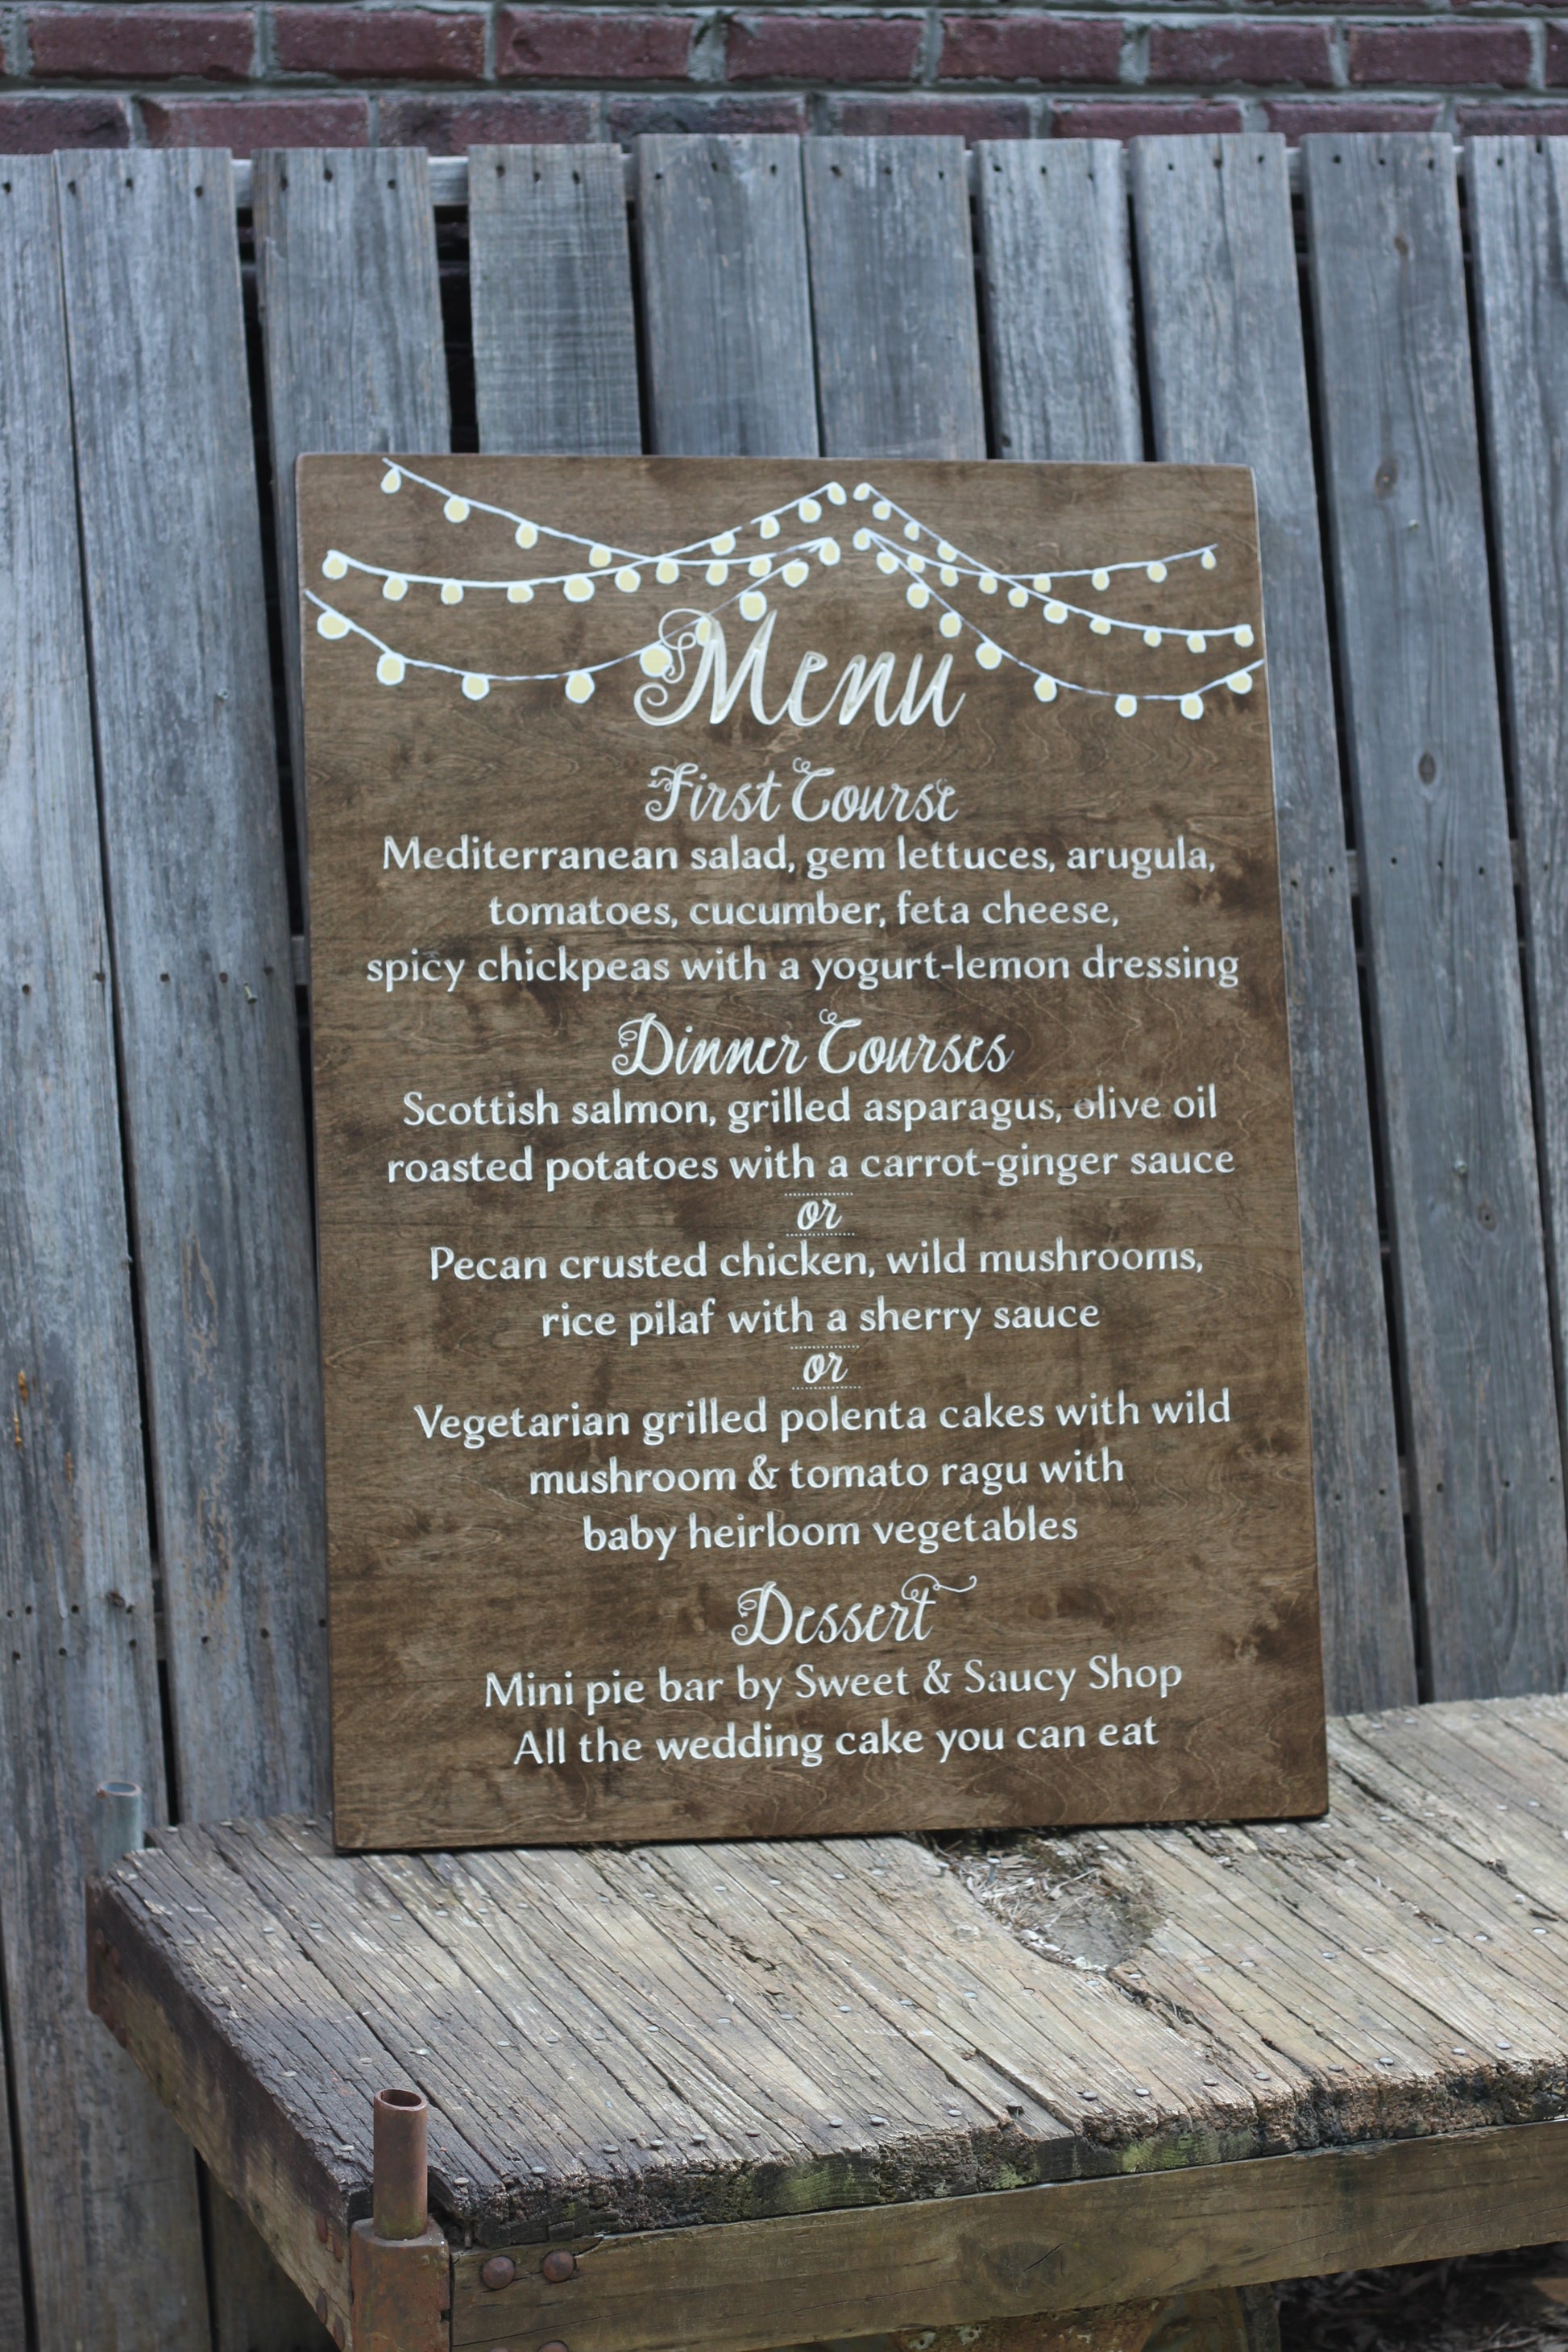 Menu
First Course
Mediterranean salad, gem lettuces, arugula,
tomatoes, cucumber, feta cheese,
spicy chickpeas with a yogurt-lemon dressing
Dinner Courses
Scottish salmon, grilled asparagus, olive oil
roasted potatoes with a carrot-ginger sauce
or
Pecan crusted chicken, wild mushrooms,
rice pilaf with a sherry sauce
or
Vegetarian grilled polenta cakes with wild
mushroom & tomato ragu with
baby heirloom vegetables
Dessert
Mini pie bar by Sweet & Saucy Shop
All the wedding cake you can eat